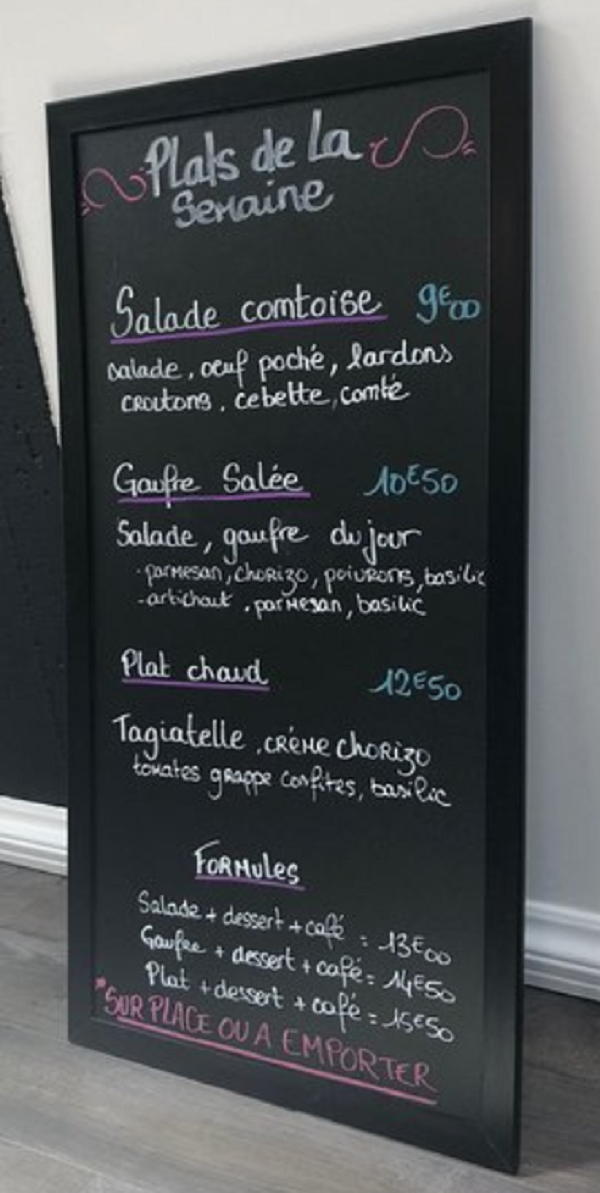 Plats de la
Semaine
Salade comtoise 9€00
salade, oeuf poché, lardons
croutons, cebette, comté
Gaufre Salée 10€50
Salade, gaufre du jour
- parmesan, chorizo, poivrons, basilic
- artichaut, parmesan, basilic
Plat chaud 12€50
Tagiatelle, crème chorizo
tomates grappe confites, basilic
Formules
Salade + dessert + café = 13€00
Gaufre + dessert + café = 14€50
Plat + dessert + café = 15€50
*SUR PLACE OU A EMPORTER